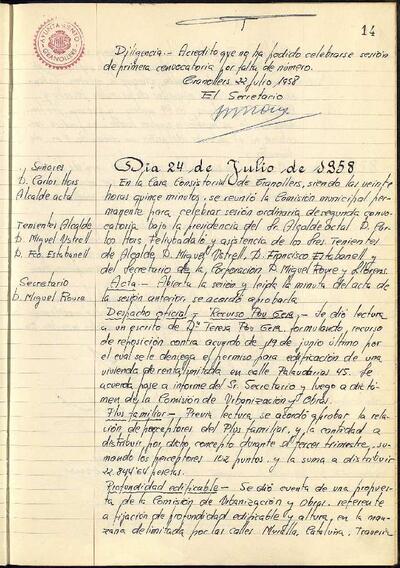 14
AYUNTAMIENTO
GRANOLLERS
Diligencia.- Acredito que no ha podido celebrarse sesión
de primera convocatoria por falta de número.
Granollers 22 julio 1958
El Secretario
Dia 24 de Julio de 1958
Señores
D. Carlos Hors
Alcalde actal
Tenientes Alcalde
D. Miguel Ustrell
D. Fco. Estabanell
Secretario
D. Miguel Roura
En la Casa Consistorial de Granollers, siendo las veinte
horas quince minutos, se reunió la Comisión municipal per-
manente para celebrar sesión ordinaria de segunda convo-
catoria bajo la presidencia del Sr. Alcalde actal D. Car-
los Hors y asistencia de los Sres. Tenientes
de Alcalde D. Miguel Ustrell, D. Francisco Estabanell y
del Secretario de la Corporación D. Miguel Roura
Acta.- Abierta la sesión y leida la minuta del acta de
la sesión anterior, se acordó aprobarla
Despacho oficial - Recurso Pou Gera.- Se dió lectura
a un escrito de Dª Teresa Pou Gera, formulando, recurso
de reposición contra acuerdo de 19 de junio último por
el cual se le deniega el permiso para edificación de una
vivienda de renta limitada en calle Palaudarias 45. Se
acuerda pase a informe del Sr. Secretario y luego a dictá-
men de la Comisión de Urbanización y Obras.
Plus familiar.- Previa lectura, se acordó aprobar la rela-
ción de perceptores del Plus familiar, y la cantidad a
distribuir, por dicho concepto durante el tercer trimestre, su-
mando los perceptores 102 puntos, y la suma a distribuir
22.844'64 pesetas.
Profundidad edificable.- Se dió cuenta de una propues-
ta de la Comisión de Urbanización y Obras, referente
a fijación de profundidad edificable y altura, en la man-
zana delimitada por las calles Muralla, Cataluña, Travesia